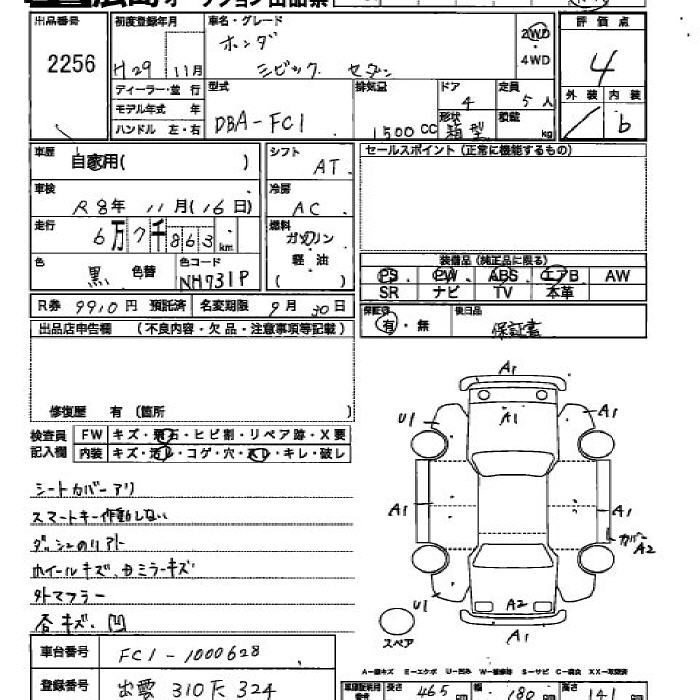 出品番号 初度登録年月 車名・グレード 評価点
2256 H29 11月 ホンダ 2WD 4WD 4
シビック セダン
ディーラー・並行 型式 排気量 ドア 定員 外装 内装
モデル年式 年 4 5人
ハンドル 左・右 DBA-FC1 1500CC 形状 箱型 積載 kg b
車歴 自家用( ) シフト AT セールスポイント(正常に機能するもの)
車検 R8年 11月(16日) 冷房 AC
走行 6万7千863km 燃料 ガソリン
軽・油
( )
色 黒 色替 色コード NH731P
装備品(純正品に限る)
PS PW ABS エアB AW
SR ナビ TV 本革
R券 9910円 預託済 名変期限 9月30日
保証書 有・無 後日品 保証書
出品店申告欄 (不良内容・欠品・注意事項等記載)
修復歴 有(箇所 )
検査員 FW キズ・飛石・ヒビ割・リペア跡・X要
記入欄 内装 キズ・汚レ・コゲ・穴・スレ・キレ・破レ
シートカバーアリ
スマートキー作動しない
ダッシュのリアト
ホイールキズ、
ミラーキズ
外マフラー
各キズ、凹
A1
U1 A1 A1
A1 A1
カバー
A2
U1 A2
A1
スペア
A−線キズ E−エクボ U−凹み W−補修跡 S−サビ C−腐食 XX−取替済
車台番号 FC1-1000628
登録番号 出雲 310 324
長さ 465cm 幅 180cm 高さ 141cm